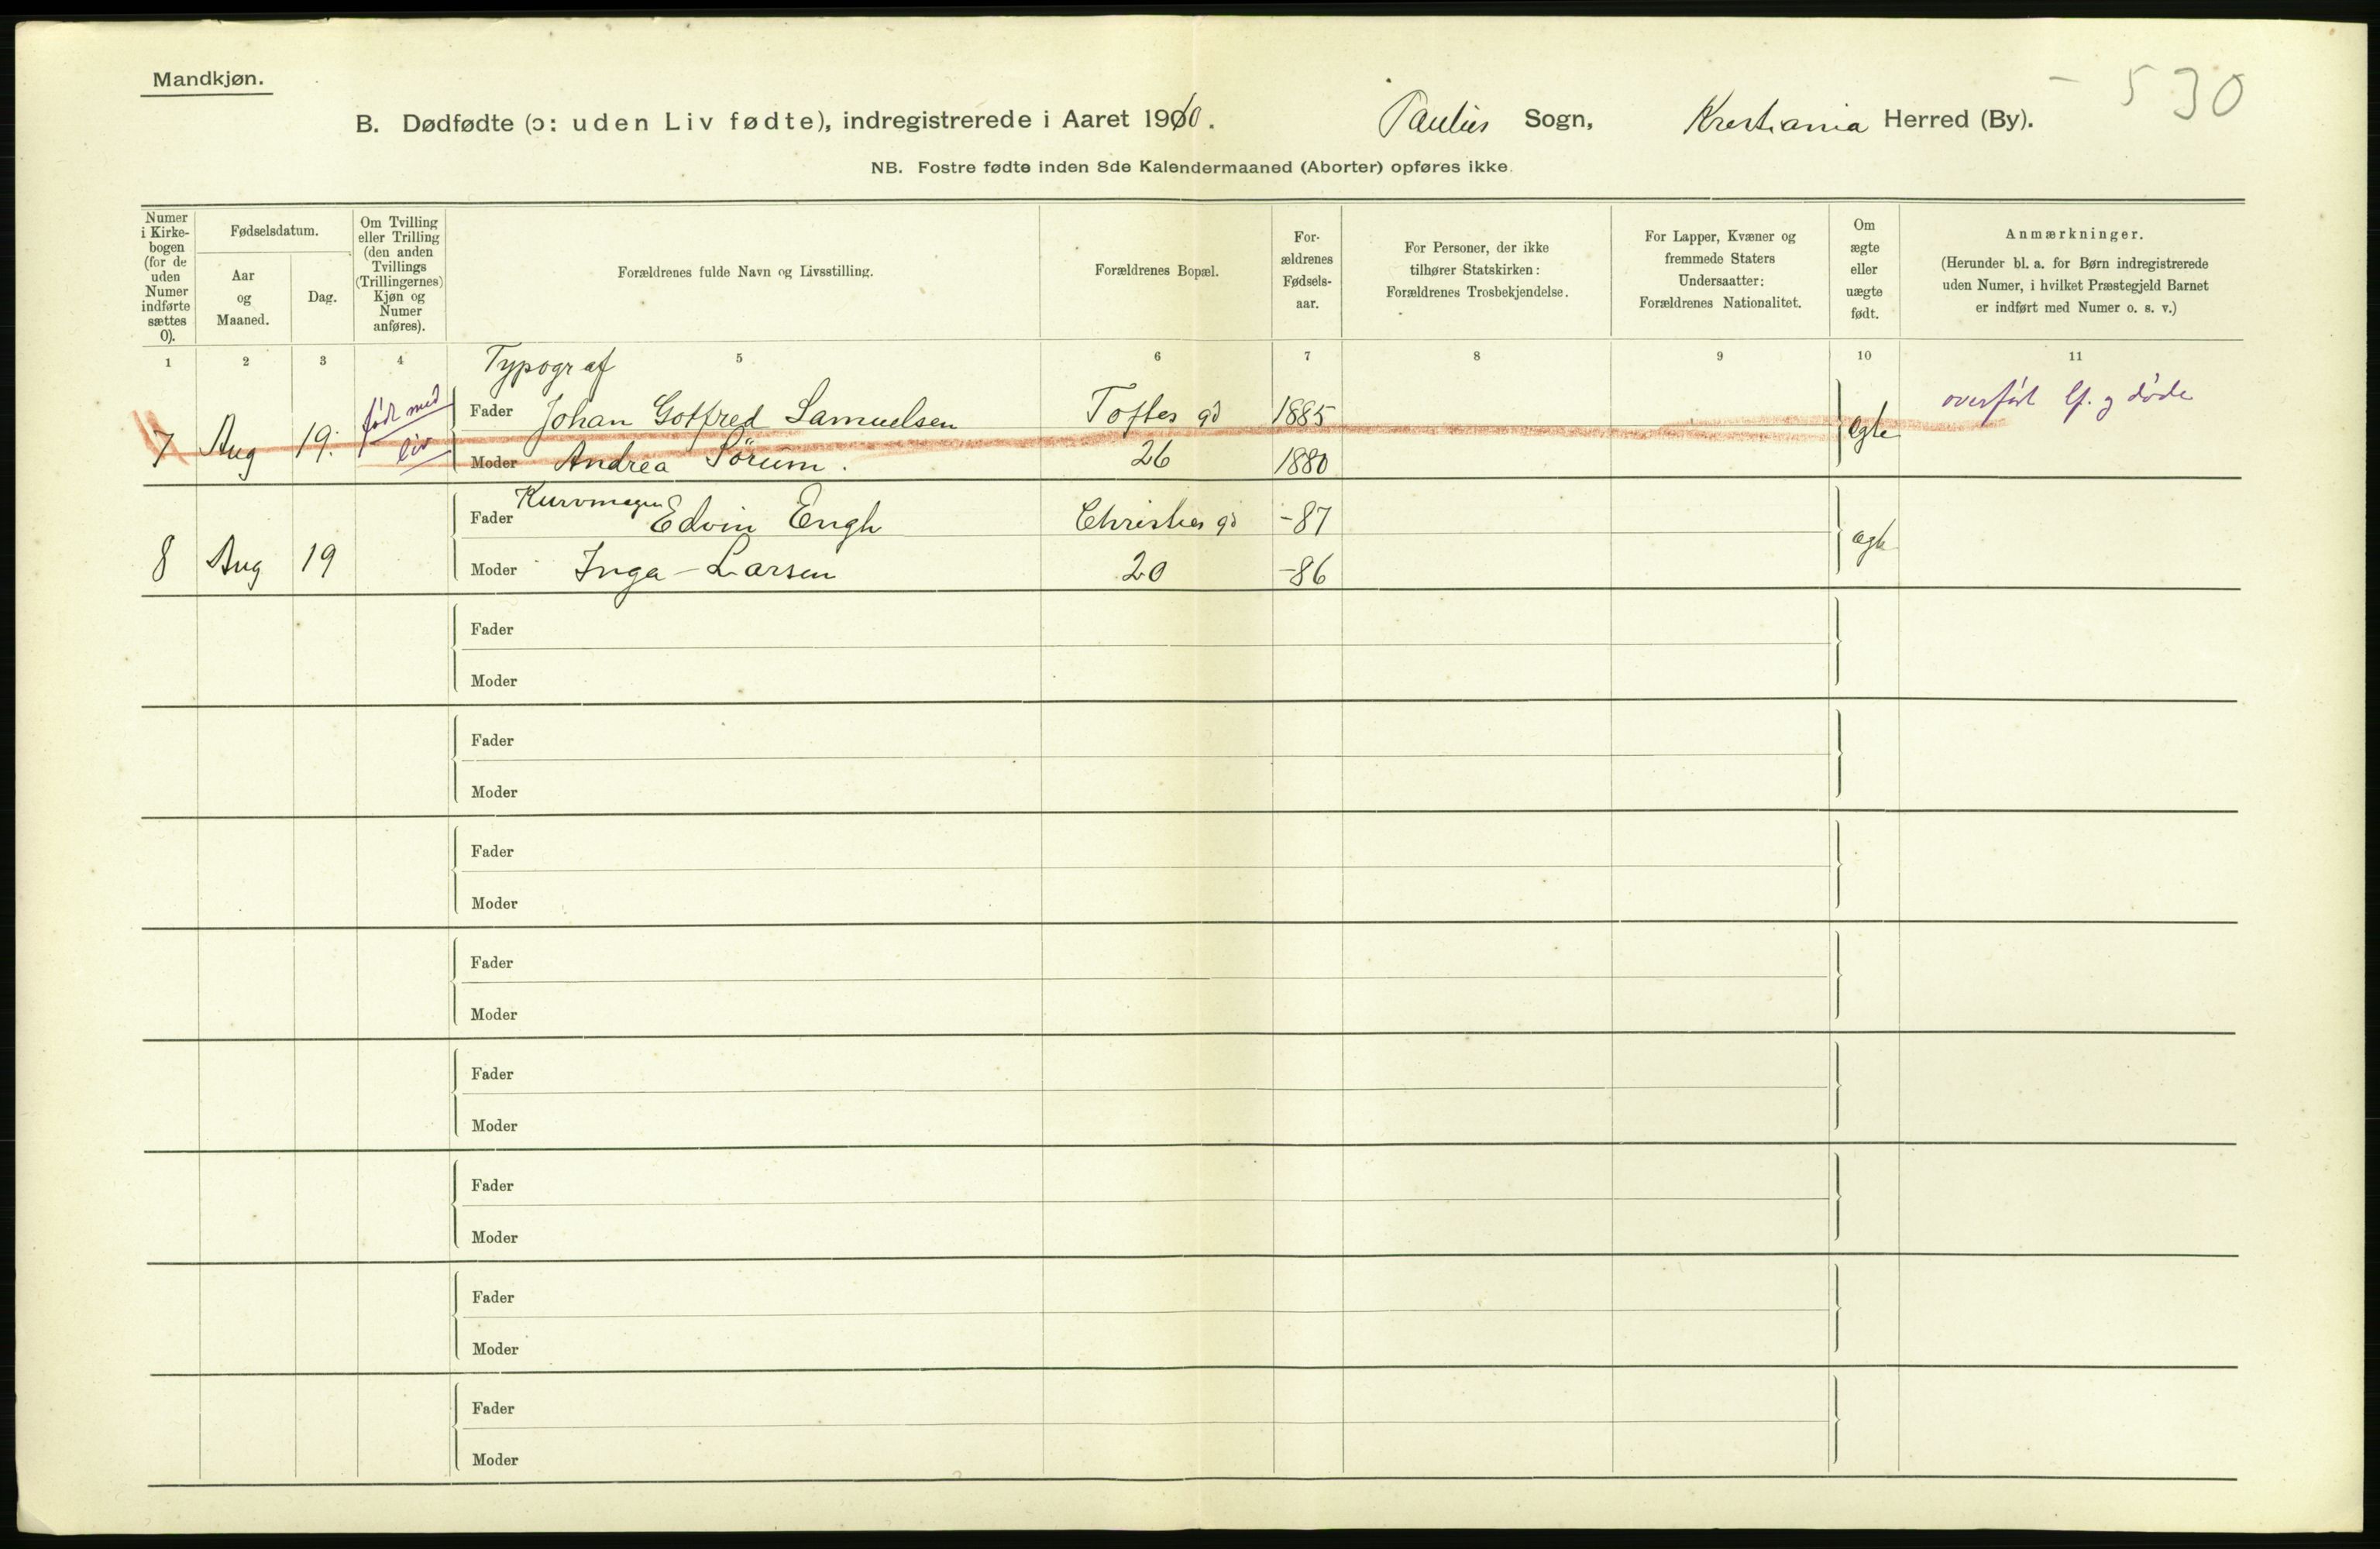 Mandkjøn.
- 530
B. Dødfødte (ɔ: uden Liv fødte), indregistrerede i Aaret 1910. Paulus Sogn, Kristiania Herred (By).
NB. Fostre fødte inden 8de Kalendermaaned (Aborter) opføres ikke.
Numer i Kirke-bogen (for de uden Numer indførte sættes 0).
Fødselsdatum.
Aar og Maaned.
Dag.
Om Tvilling eller Trilling (den anden Tvillings (Trillingernes) Kjøn og Numer anføres).
Forældrenes fulde Navn og Livsstilling.
Forældrenes Bopæl.
For-ældrenes Fødsels-aar.
For Personer, der ikke tilhører Statskirken: Forældrenes Trosbekjendelse.
For Lapper, Kvæner og fremmede Staters Undersaatter: Forældrenes Nationalitet.
Om ægte eller uægte født.
Anmærkninger.
(Herunder bl. a. for Børn indregistrerede uden Numer, i hvilket Præstegjeld Barnet er indført med Numer o. s. v.)
1 2 3 4 5 6 7 8 9 10 11
Typograf
7 Aug 19. født med liv Fader Johan Gotfred Samuelsen Toftes gd 1885 ægte overført lf. og døde
Moder Andrea Sörum. 26 1880
Kurvmager
8 Aug 19 Fader Edvin Engh Christies gd -87 ægte
Moder Inga Larsen 20 -86
Fader
Moder
Fader
Moder
Fader
Moder
Fader
Moder
Fader
Moder
Fader
Moder
Fader
Moder
Fader
Moder